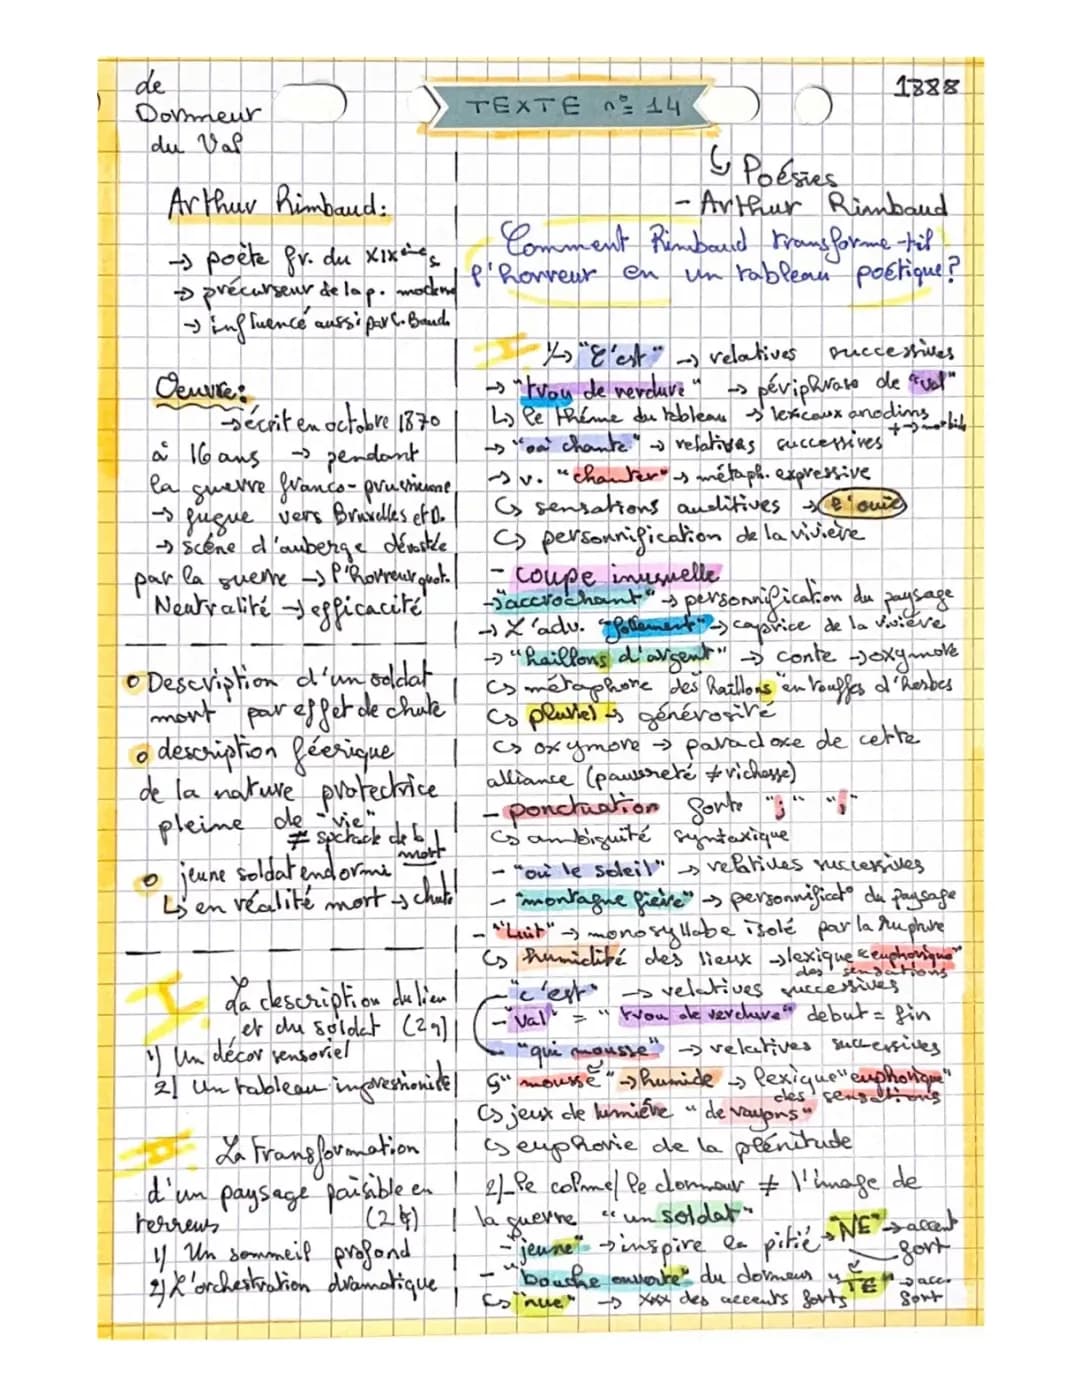 de
Dormeur
du Val
TEXTE nº 14
1888
↳ Poésies
- Arthur Rimbaud
Comment Rimbaud transforme-til
l'horreur en un tableau poétique?
Arthur Rimbaud:
→ poète fr. du XIXème s
→ précurseur de la p. moderne
→ influencé aussi par C. Baud.
Oeuvre:
→ écrit en octobre 1870
à 16 ans → pendant
la guerre franco-prussienne
→ fugue vers Bruxelles et D.
→ scène d'auberge dévastée
par la guerre → l'horreur quot.
Neutralité → efficacité
o Description d'un soldat
mort par effet de chute
o description féerique
de la nature protectrice
pleine de "vie"
≠ spectacle de la mort
o jeune soldat endormi
↳ en réalité mort → chute
I. La description du lieu
et du soldat (2q)
1) Un décor sensoriel
2) Un tableau impressioniste
II. La transformation
d'un paysage paisible en
terreurs (2t)
1) Un sommeil profond
2) L'orchestration dramatique
I 1/→ "C'est" → relatives successives
→ "trou de verdure" → périphrase de "val"
↳ le thème du tableau → lexicaux anodins
+ → morbide
→ "où chante" → relatives successives
→ v. "chanter" → métaph. expressive
↳ sensations auditives → l'ouïe
↳ personnification de la rivière
- coupe inusuelle
→ "accrochant" → personnification du paysage
→ L'adv. "follement" → caprice de la rivière
→ "haillons d'argent" → conte → oxymore
↳ métaphore des "haillons" en touffes d'herbes
↳ pluriel → générosité
↳ oxymore → paradoxe de cette
alliance (pauvreté ≠ richesse)
- ponctuation forte ";" ";"
↳ ambiguité syntaxique
- "où le soleil" → relatives successives
- "montagne fière" → personnificat° du paysage
- "Luit" → monosyllabe isolé par la rupture
↳ humidité des lieux → lexique "euphorique"
des sensations
- "c'est" → relatives successives
- "Val" = "trou de verdure" début = fin
- "qui mousse" → relatives successives
↳ "mousse" → humide → lexique "euphorique"
des sensations
↳ jeux de lumière "de rayons"
↳ euphorie de la plénitude
2/- le calme/le dormeur ≠ l'image de
la guerre "un soldat"
- "jeune" → inspire la pitié → "NE" → accent
fort
- "bouche ouverte" du dormeur "TE" → acc.
fort
↳ "nue" → des accents forts